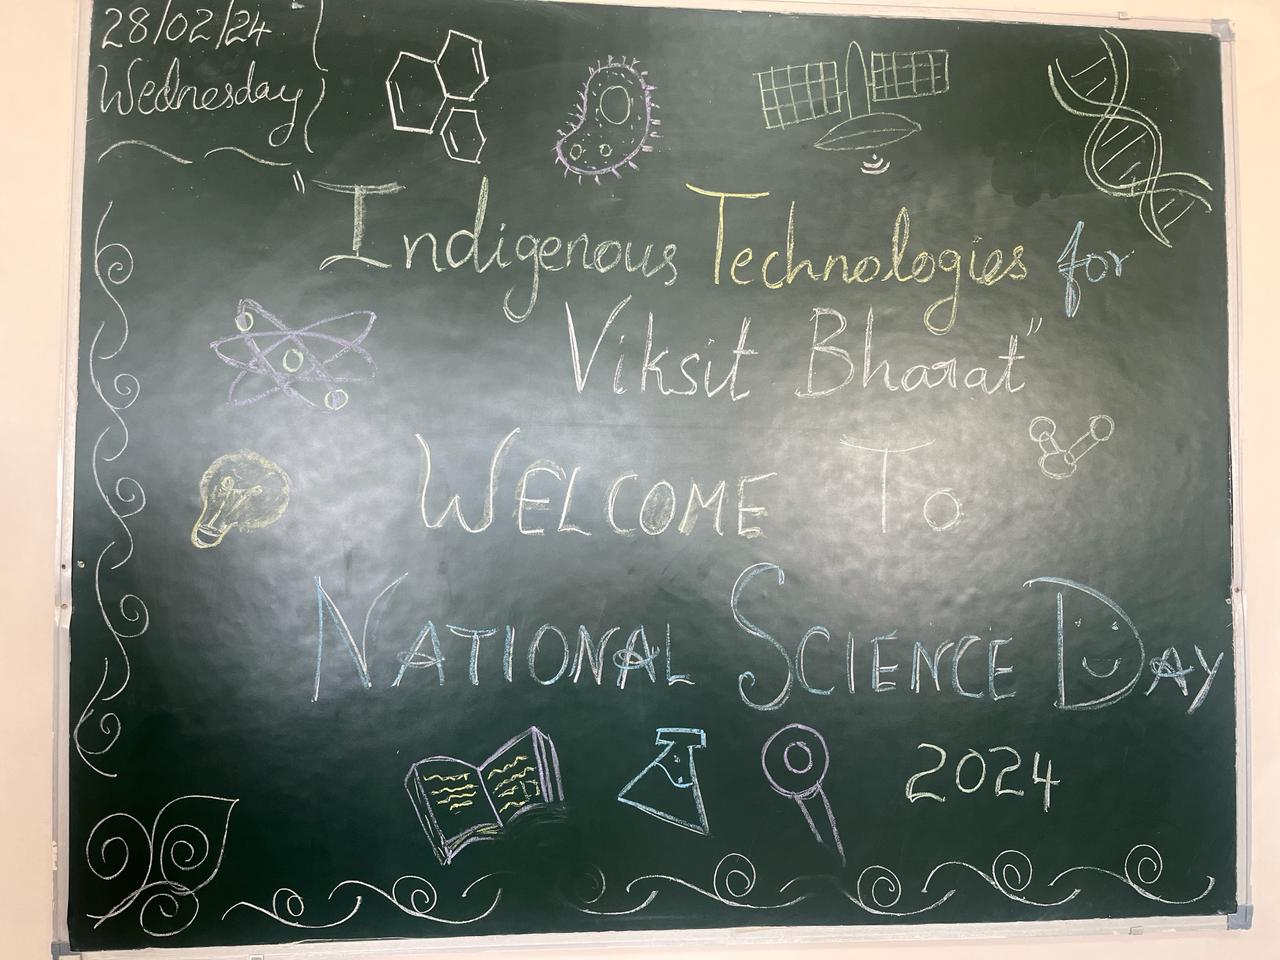 28/02/24
Wednesday
"Indigenous Technologies for
Viksit Bharat"
WELCOME TO
NATIONAL SCIENCE DAY
2024